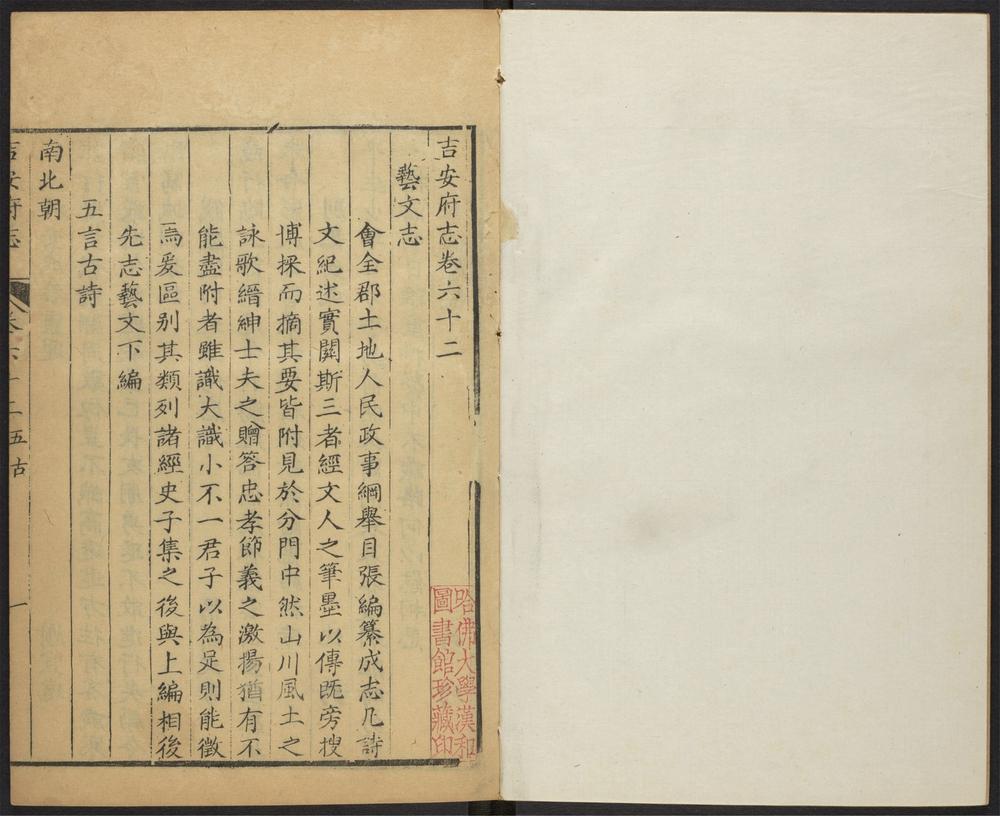 吉安府志卷六十二
藝文志
會全郡土地人民政事綱舉目張編纂成志凡詩
文紀述實關斯三者經文人之筆墨以傳既旁搜
博採而摘其要皆附見於分門中然山川風土之
詠歌縉紳士夫之贈答忠孝節義之激揚猶有不
能盡附者雖識大識小不一君子以為足則能徵
焉爰區別其類列諸經史子集之後與上編相後
先志藝文下編
五言古詩
南北朝
吉安府志
卷六十二五古
一
哈佛大學漢和
圖書館珍藏印